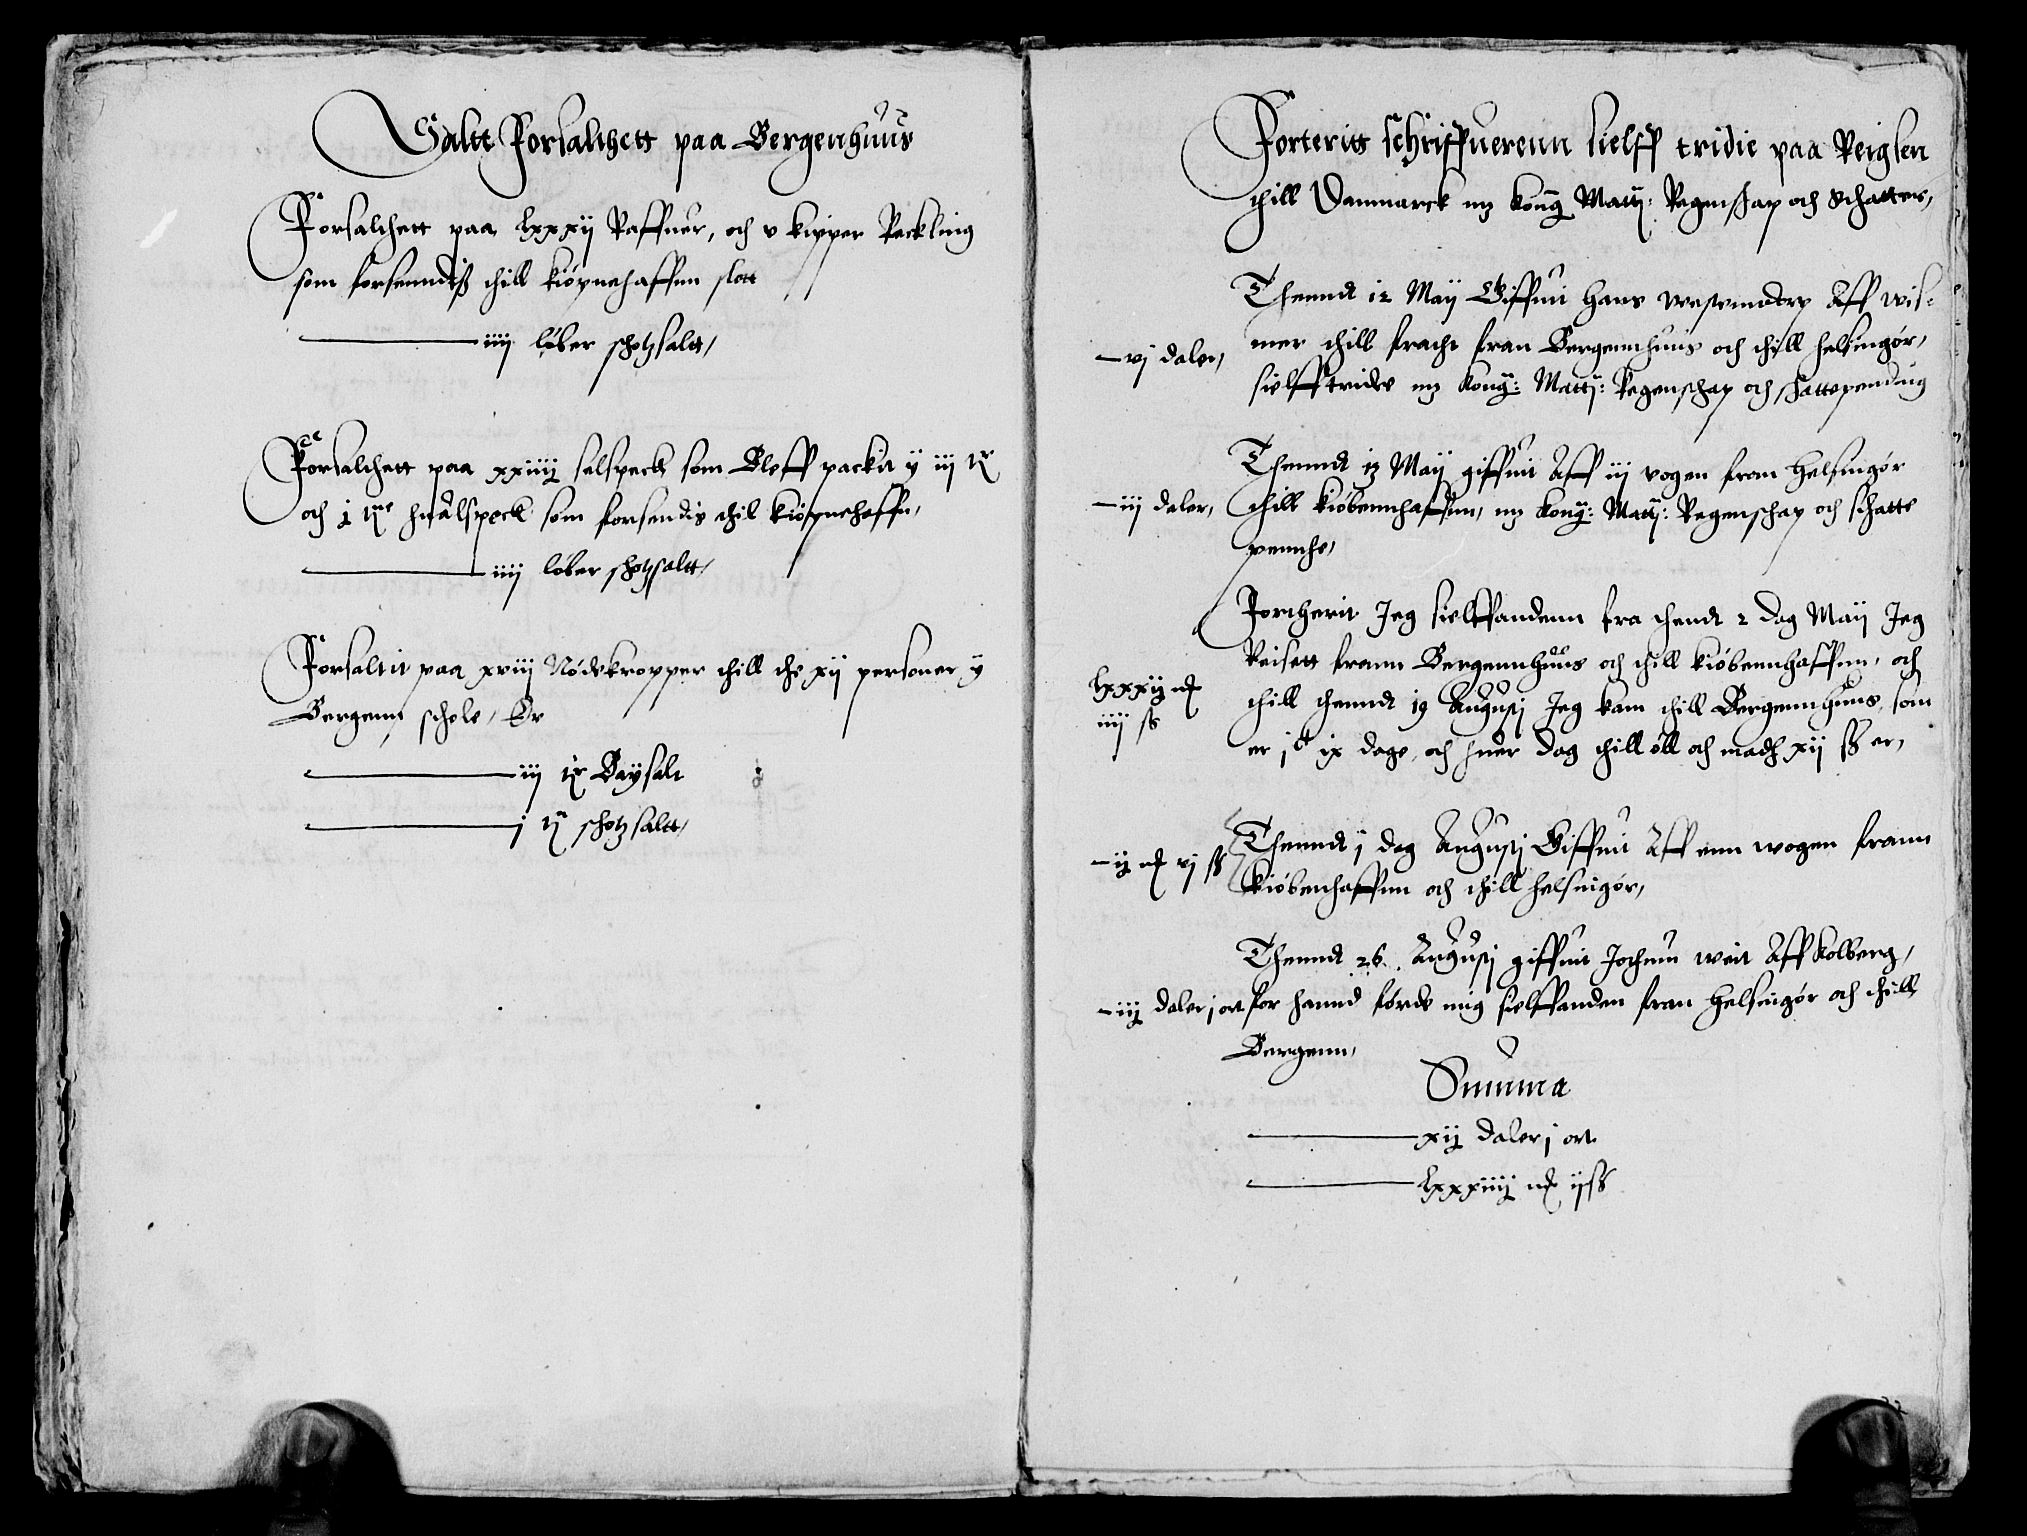 Saltt Forsalthett paa Bergenhuus
Forsalthett paa lxxxij Raffuer, och v kipper Reckling
som forsenndiß thill kiøpnehaffnn slott
iiij løber skotzsaltt,
Forsalthett paa xxiiij selspeck som Bleff packit y iij tr
och j tne hualspeck som forsendis thil kiøpnehaffn,
iiij løber skotzsaltt,
Forsaltit paa xviij Nødekropper thill the xij personer y
Bergenn schole, Er
iij tr Baysalt
j tr skotzsaltt,
Forteritt schriffuerenn sielff tridie paa Reigsen
thill Danmarck mz Kong Matt: Regenskap och schatter,
Thennd 12 Maij Giffuit Hans westeundtzy Aff wis-
mer thill fracht fran Bergennhuus och thill helsingør,
- vj daler,
sielff tridie mz Kong: Matt: Regenschap och skattepending
Thennd 13 Maij giffuit Aff iij vogen fran Helsingør
- iij daler,
thill kiøbennhaffnn, mz Kong: Matt: Regenschap och schatte
pennghe,
Fortherit Jeg sielffandenn fra thend 2 dag Maij Jeg
Reisett frann Bergennhuus och thill kiøbennhaffnn, och
lxxxij mk
iiij ß
thill thennd 19 Augustj Jeg kam thill Bergennhuus, som
er jC ix dage, och huer dag thill øll och madh xij ß er,
- ij mk vj ß
Thennd j dag Augustj Giffuit Aff enn wogen frann
kiøbenhaffnn och thill helsingør,
Thennd 26 Augustj giffuit Jochum weit Aff Kolberg,
- iij daler j ort
for hannd førde mig sielffanden fran Helsingør och thill
Bergenn,
Summa
xij daler j ort
lxxxiiij mk ij ß